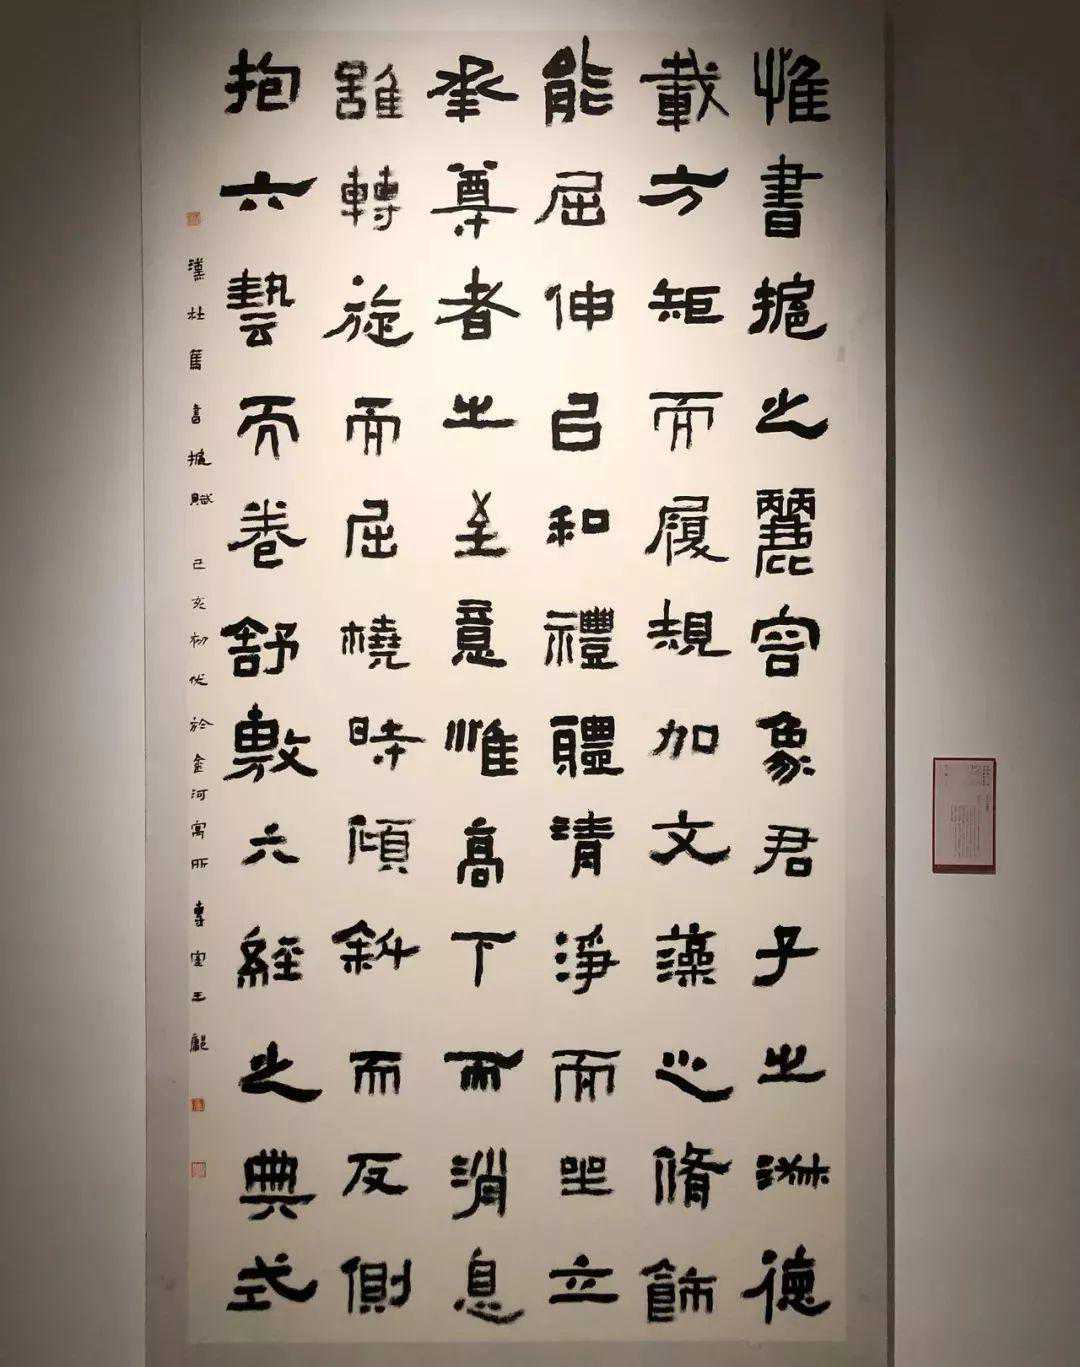 惟書摢之麗容象君子之淑德
載方矩而履規加文藻之脩飾
能屈伸㠯和禮體清淨而坐立
承尊者之至意惟高下而消息
雖轉旋而屈橈時傾斜而反側
抱六藝而卷舒敷六經之典式
漢杜篤書摢賦 己亥初伏於金河寓所 專堂王